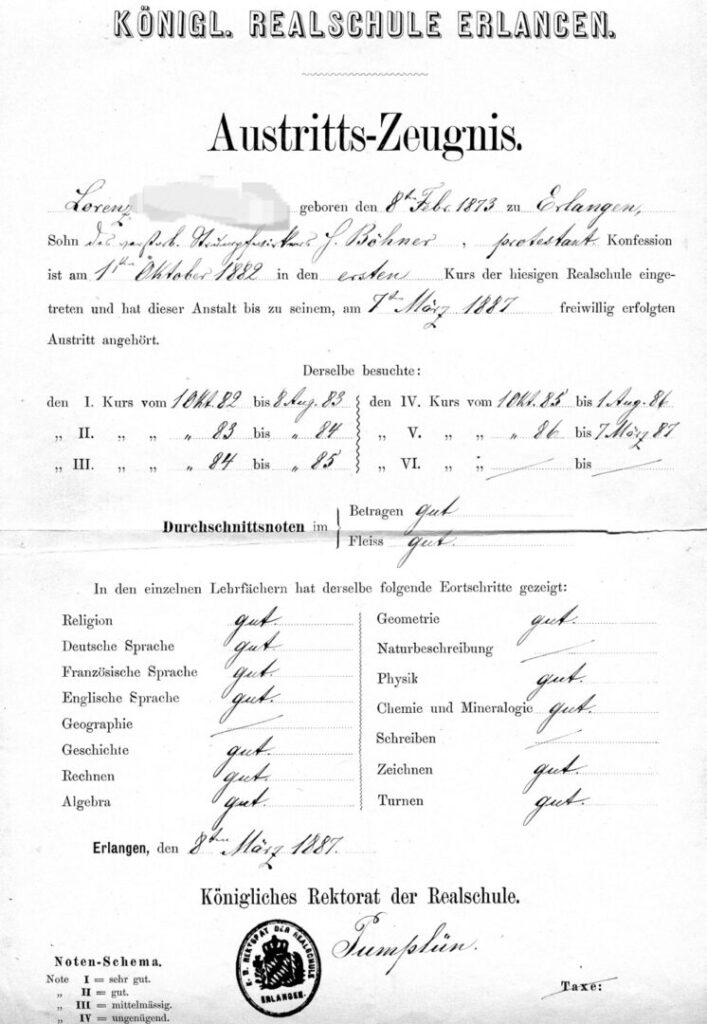 KÖNIGL. REALSCHULE ERLANGEN.
Austritts-Zeugnis.
Lorenz geboren den 8ten Febr. 1873 zu Erlangen,
Sohn des verstorb. Strumpfwirkers J. Böhner, protestant. Konfession
ist am 1ten Oktober 1882 in den ersten Kurs der hiesigen Realschule einge-
treten und hat dieser Anstalt bis zu seinem, am 7ten März 1887 freiwillig erfolgten
Austritt angehört.
Derselbe besuchte:
den I. Kurs vom 1 Okt. 82 bis 8 Aug. 83 den IV. Kurs vom 1 Okt. 85 bis 1 Aug. 86
„ II. „ „ „ 83 bis „ 84 „ V. „ „ „ 86 bis 7 März 87
„ III. „ „ „ 84 bis „ 85 „ VI. „ „ bis
Durchschnittsnoten im Betragen gut
Fleiss gut.
In den einzelnen Lehrfächern hat derselbe folgende Eortschritte gezeigt:
Religion gut. Geometrie gut.
Deutsche Sprache gut. Naturbeschreibung
Französische Sprache gut. Physik gut.
Englische Sprache gut. Chemie und Mineralogie gut.
Geographie Schreiben
Geschichte gut. Zeichnen gut.
Rechnen gut. Turnen gut.
Algebra gut.
Erlangen, den 8ten März 1887.
Königliches Rektorat der Realschule.
K. B. REKTORAT DER REALSCHULE ERLANGEN.
Noten-Schema.
Note I = sehr gut.
„ II = gut.
„ III = mittelmässig.
„ IV = ungenügend.
Taxe: